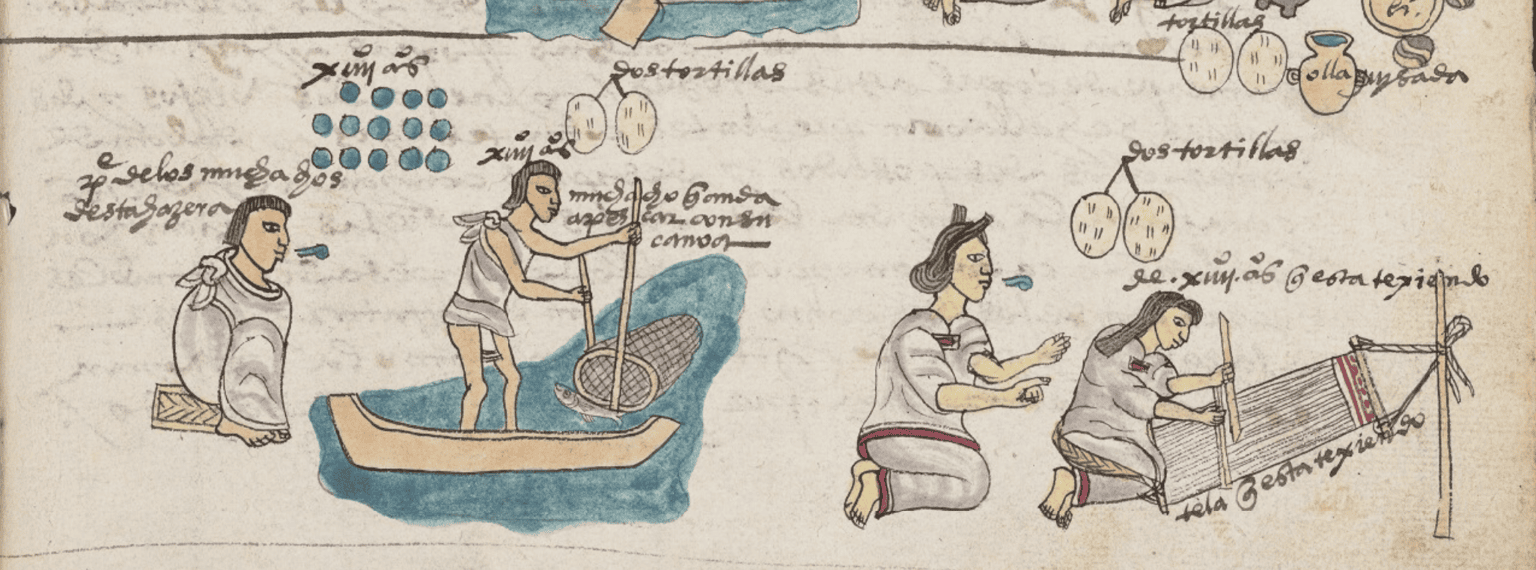 tortillas
olla
xiiij aºs
dos tortillas
xiiij aºs
pe de los muchachos
desta hazera
muchacho q anda
a pescar con su
canoa
dos tortillas
de .xiiij.aºs q esta texiendo
tela q esta texiendo